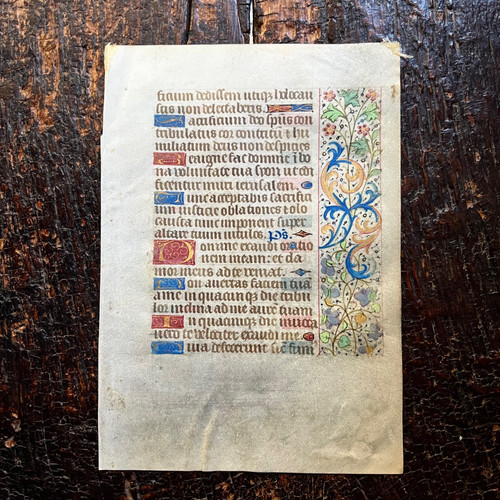 ficium dedissem utiqz holocau
stis non delectaberis.
Sacrificium deo sp̄us con
tribulatus cor contritū ⁊ hu
miliatum deus non despicies
Benigne fac domine ī bo
na voluntate tua syon ut edi
ficentur muri ierusalem.
Tunc acceptabis sacrifici
um iusticie oblationes et olo
causta tunc imponent super
altare tuum vitulos. ps̄.
Domine exaudi oratio
nem meam: et cla
mor meus ad te veniat.
Non avertas faciem tuā
a me in quacunqz die tribu
lor inclina ad me aurē tuam
In quacunqz die invoca
vero te velociter exaudi me
Quia defecerunt sic̄ fum